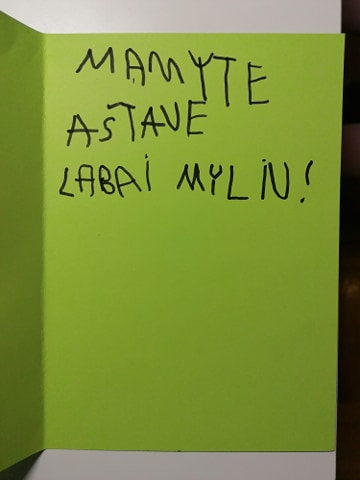 MAMYTE
AŠTAVE
LABAI MYLIU!